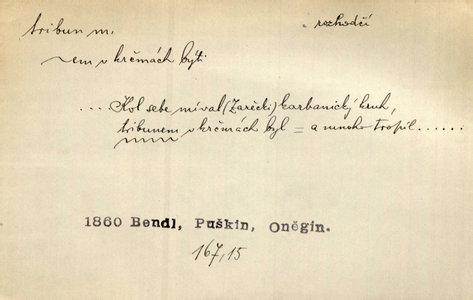 tribun m.
rozhodčí
~em v krčmách býti
.... Kol sebe míval (Zarěcki) karbanický kruh,
tribunem v krčmách byl = a mnoho tropil......
1860 Bendl, Puškin, Oněgin.
167,15